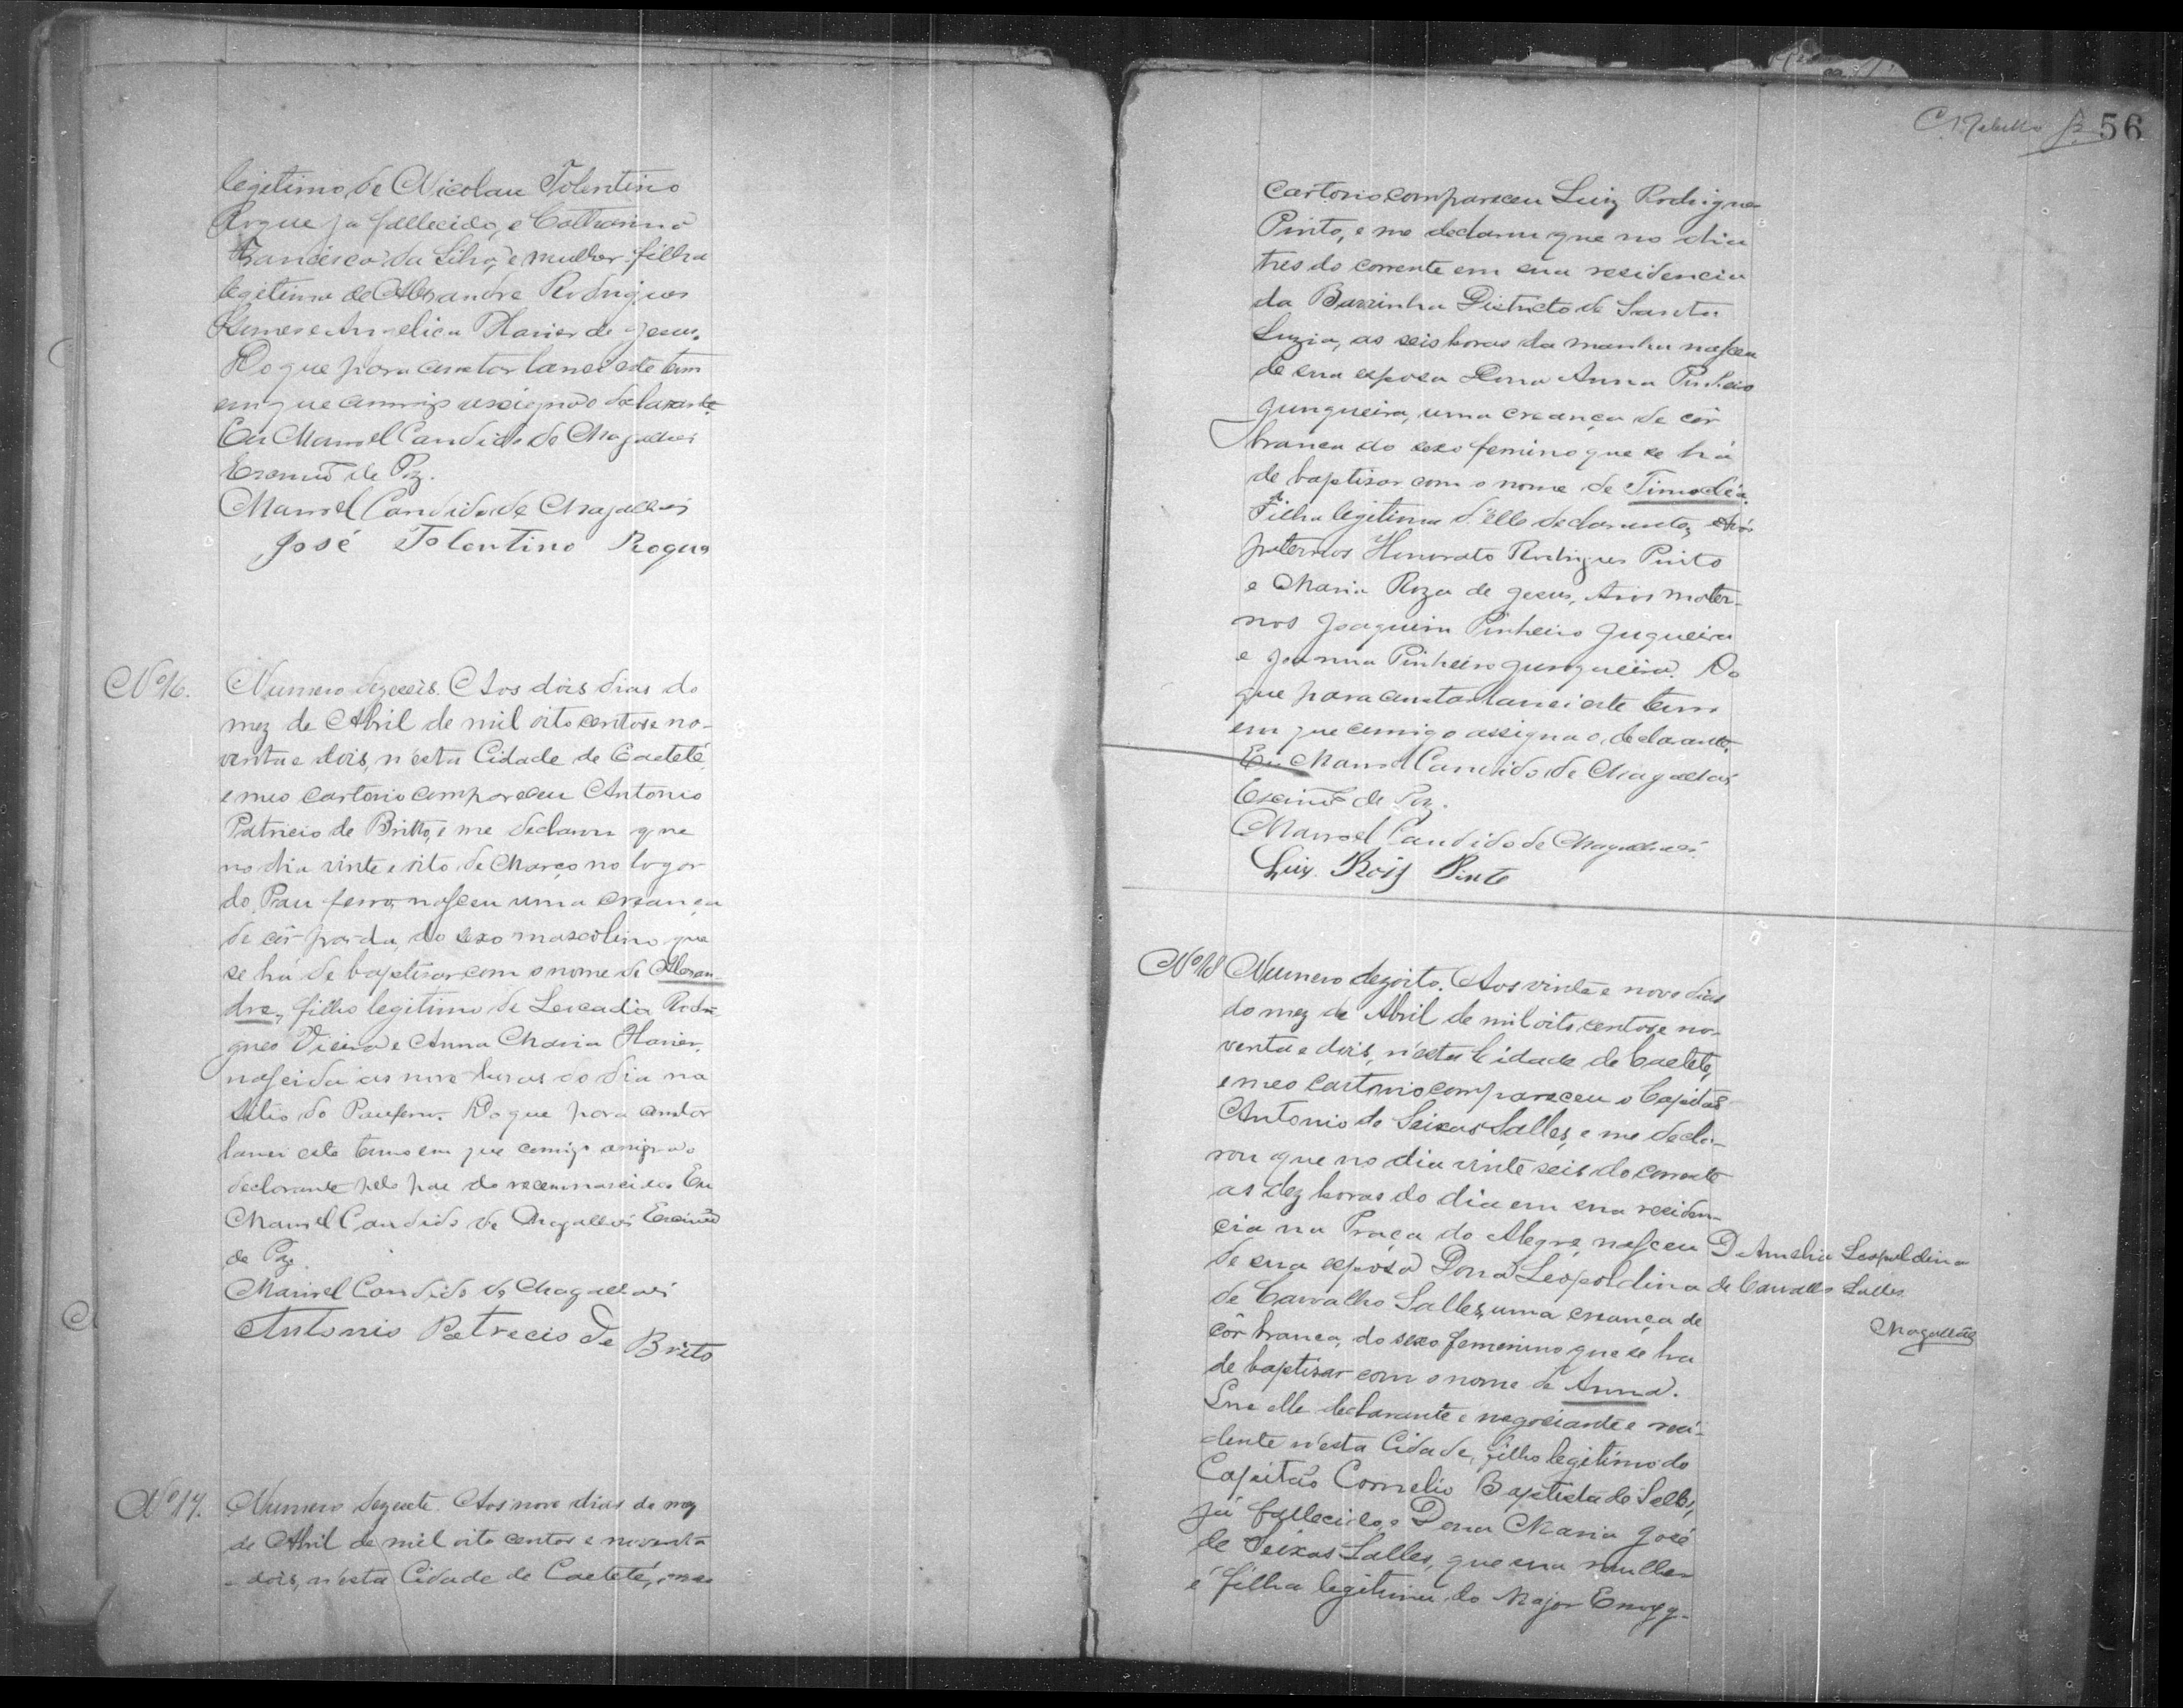 legitimo, de Nicolau Tolentino
Roque ja fallecido, e Catharina
Francisca da Silva, e mulher filha
legitima de Alexandre Rodrigues
Angelica Xavier de Jesus.
Do que para constar lancei este termo
em que comigo assigna o declarante
Eu Manoel Candido de Magalhães
Escrivão de Paz.
Manoel Candido de Magalhães
José Tolentino Roque
Nº 16.
Numero dezeseis. Aos dois dias do
mez de Abril de mil oito centos e no-
venta e dois, n'esta Cidade de Caeteté,
e meo cartorio compareceu Antonio
Patricio de Britto, e me declarou que
no dia vinte e oito de Março no logar
do Pau ferro, nasceu uma creança
de côr parda, do sexo masculino que
se há de baptisar com o nome de Alexan-
dre, filho legitimo de Leocadia Rodri-
gues Vieira e Anna Maria Xavier,
nascida as nove horas do dia na
sitio do Pauferro. Do que para constar
lancei este termo em que comigo assigna o
declarante pelo pae do recemnascido. Eu
Manoel Candido de Magalhães Escrivão
de Paz.
Manoel Candido de Magalhães
Antonio Patrecio de Brito
Nº 17.
Numero dezesete. Aos nove dias do mez
de Abril de mil oito centos e noventa
e dois, n'esta Cidade de Caeteté, e meo
56
cartorio compareceu Luiz Rodrigues
Pinto, e me declarou que no dia
tres do corrente em sua residencia
da Barrinha Districto de Santa
Luzia, as seis horas da manhã nasceu
de sua esposa Dona Anna Pinheiro
Junqueira, uma creança de côr
branca do sexo femino que se há
de baptisar com o nome de Timodéa.
Filha legitima d'elle declarante, Avós
paternos Honorato Rodrigues Pinto
e Maria Roza de Jesus, Avós mater-
nos Joaquim Pinheiro Juqueira
e Joanna Pinheiro Junqueira. Do
que para constar lancei este termo
em que comigo assigna o declarante.
Eu Manoel Candido de Magalhães
Escrivão de Paz.
Manoel Candido de Magalhães
Luiz Roiz Pinto
Nº 18
Numero dezoito. Aos vinte e nove dias
do mez de Abril de mil oito centos e no-
venta e dois, n'esta Cidade de Caeteté,
e meo cartorio compareceu o Capitão
Antonio de Seixas Salles, e me decla-
rou que no dia vinte seis do corrente
as dez horas do dia em sua residen-
cia na Praça do Alegre, nasceu
de sua esposa Dona Leopoldina
de Carvalho Salles, uma creança de
côr branca, do sexo femenino que se ha
de baptisar com o nome de Anna.
Que elle declarante é negociante e resi-
dente n'esta Cidade, filho legitimo do
Capitão Cornelio Baptista de Salles,
já fallecido, e Dona Maria José
de Seixas Salles, que sua mulher
é filha legitima do Major
D Amelia Leopoldina
de Carvalho Salles
Magalhães